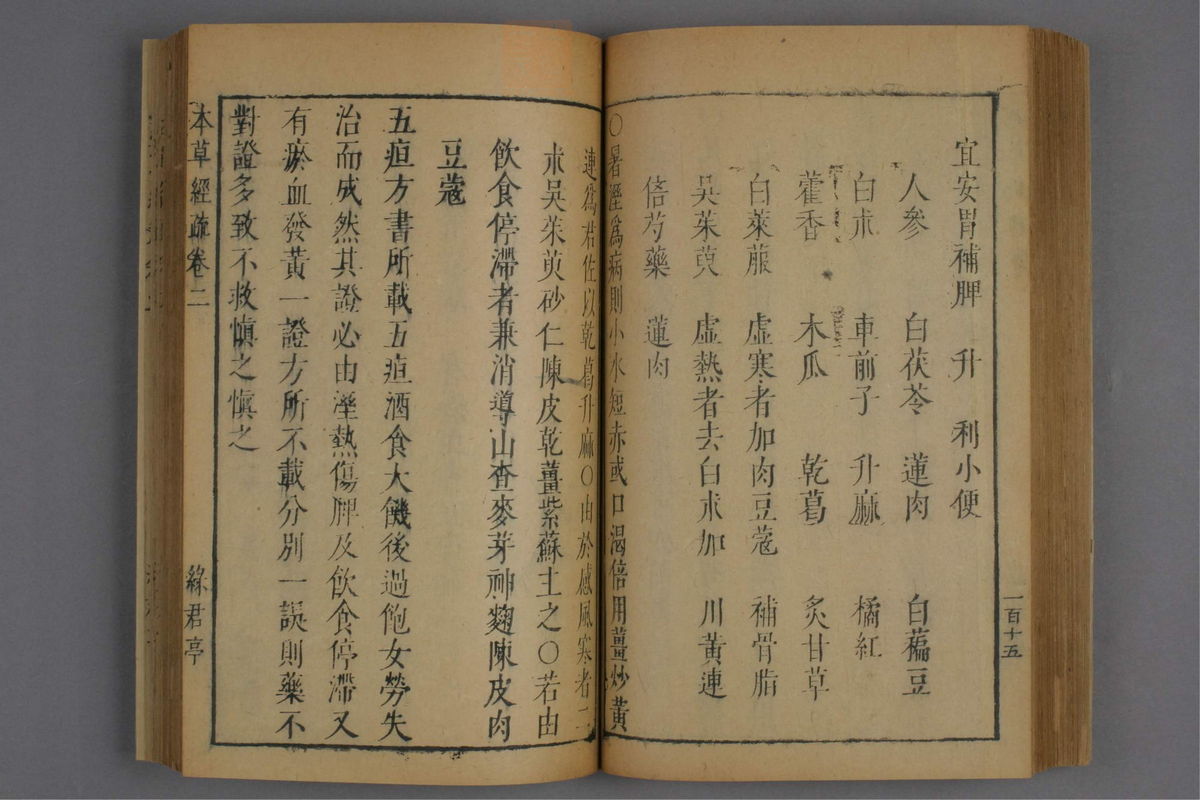 宜安胃補脾　升　利小便
人參　白茯苓　蓮肉　白藊豆
白朮　車前子　升麻　橘紅
藿香　木瓜　乾葛　炙甘草
白萊菔　虛寒者加肉豆蔻　補骨脂
吳茱萸　虛熱者去白朮加　川黃連
倍芍藥　蓮肉
○暑溼爲病則小水短赤或口渴倍用薑炒黃
一百十五
連爲君佐以乾葛升麻○由於感風寒者二
朮吳茱萸砂仁陳皮乾薑紫蘇主之○若由
飲食停滯者兼消導山查麥芽神麴陳皮肉
豆蔻
五疸方書所載五疸酒食大饑後過飽女勞失
治而成然其證必由溼熱傷脾及飲食停滯又
有瘀血發黃一證方所不載分別一誤則藥不
對證多致不救愼之愼之
本草經疏卷二
綠君亭